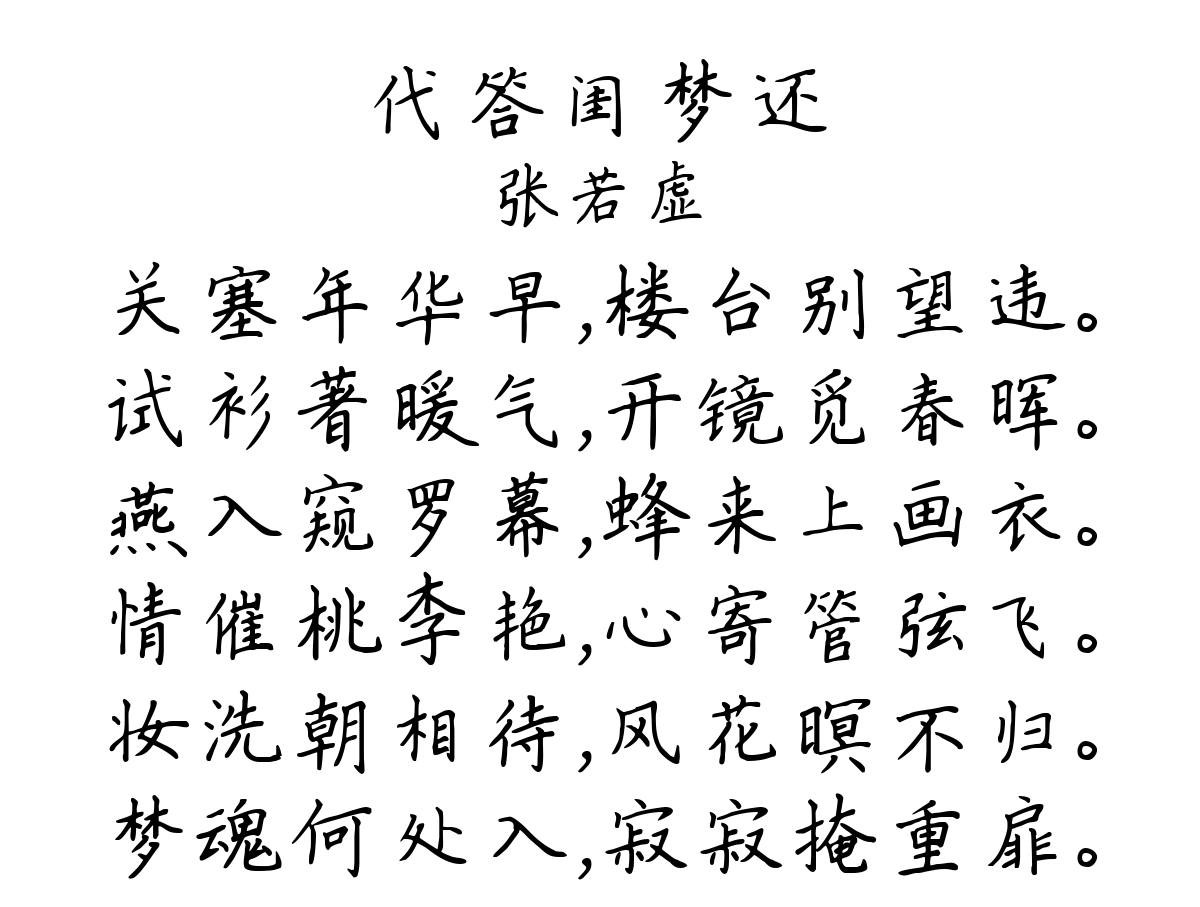 代答闺梦还
张若虚
关塞年华早,楼台别望违。
试衫著暖气,开镜觅春晖。
燕入窥罗幕,蜂来上画衣。
情催桃李艳,心寄管弦飞。
妆洗朝相待,风花暝不归。
梦魂何处入,寂寂掩重扉。